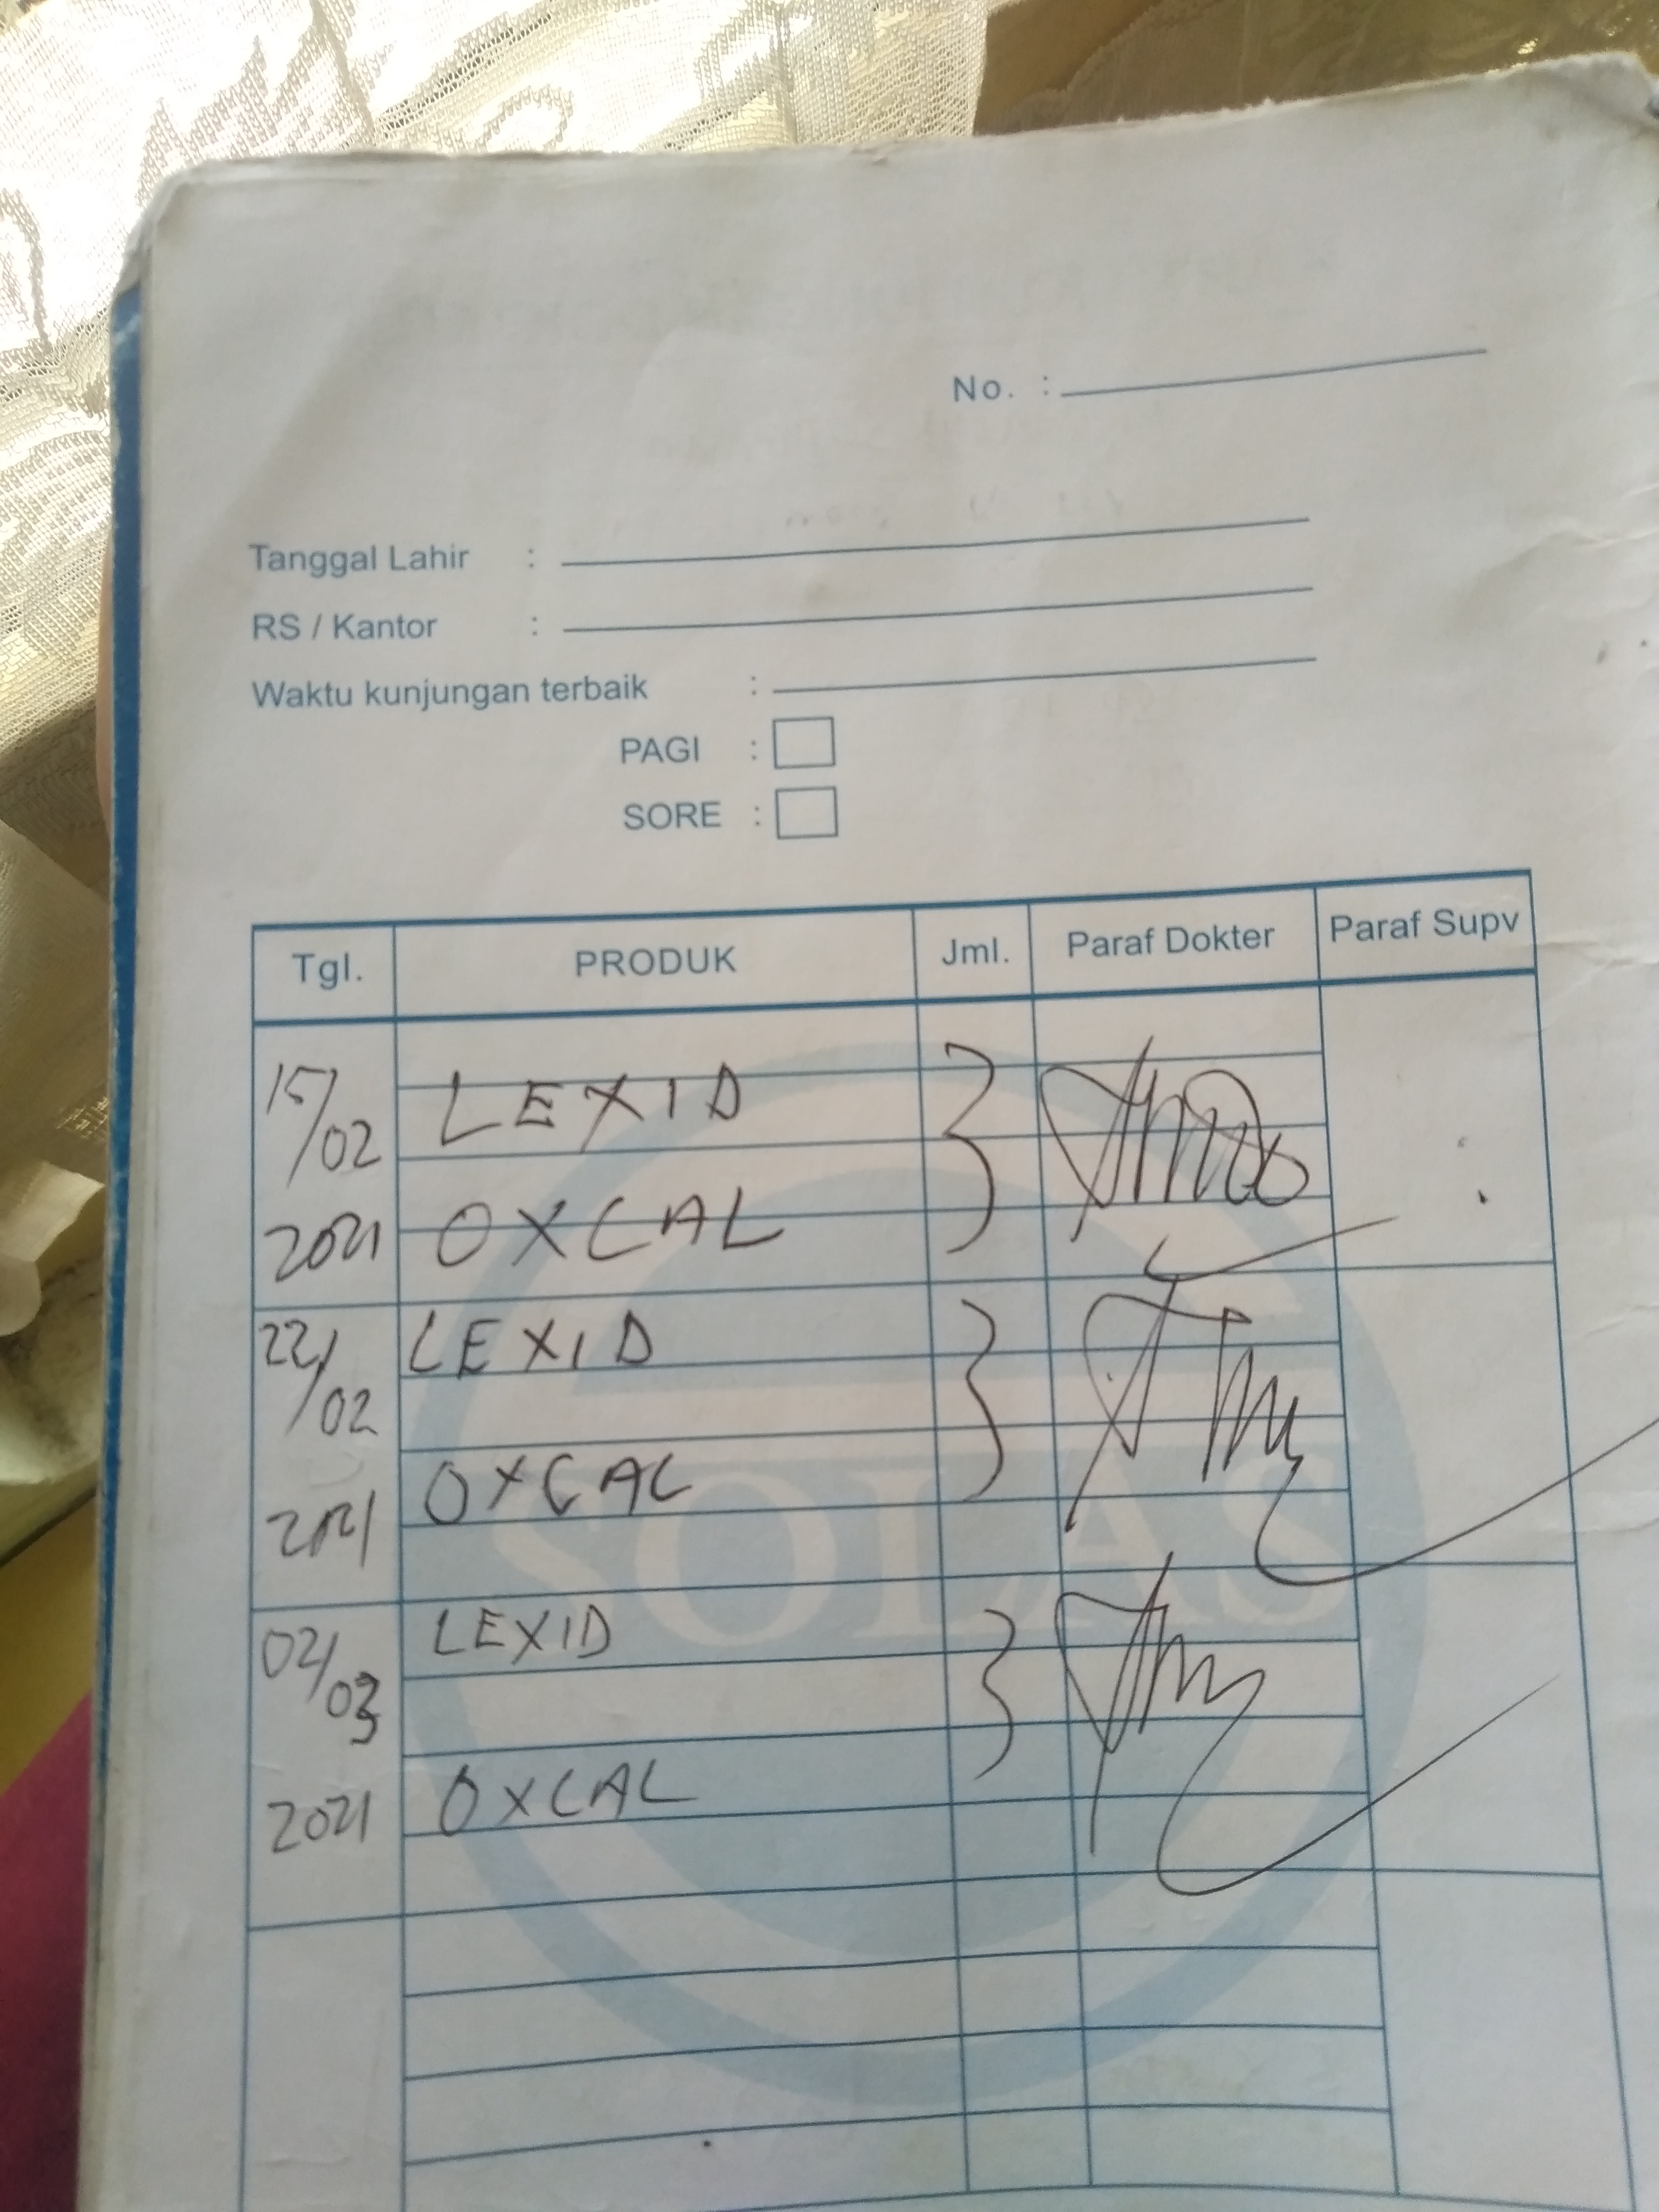 No. :
Tanggal Lahir :
RS / Kantor :
Waktu kunjungan terbaik :
PAGI :
SORE :
Tgl. PRODUK Jml. Paraf Dokter Paraf Supv
15/02 LEXID
2021 OXCAL
22/02 LEXID
2021 OXCAL
02/03 LEXID
2021 OXCAL
SOLAS